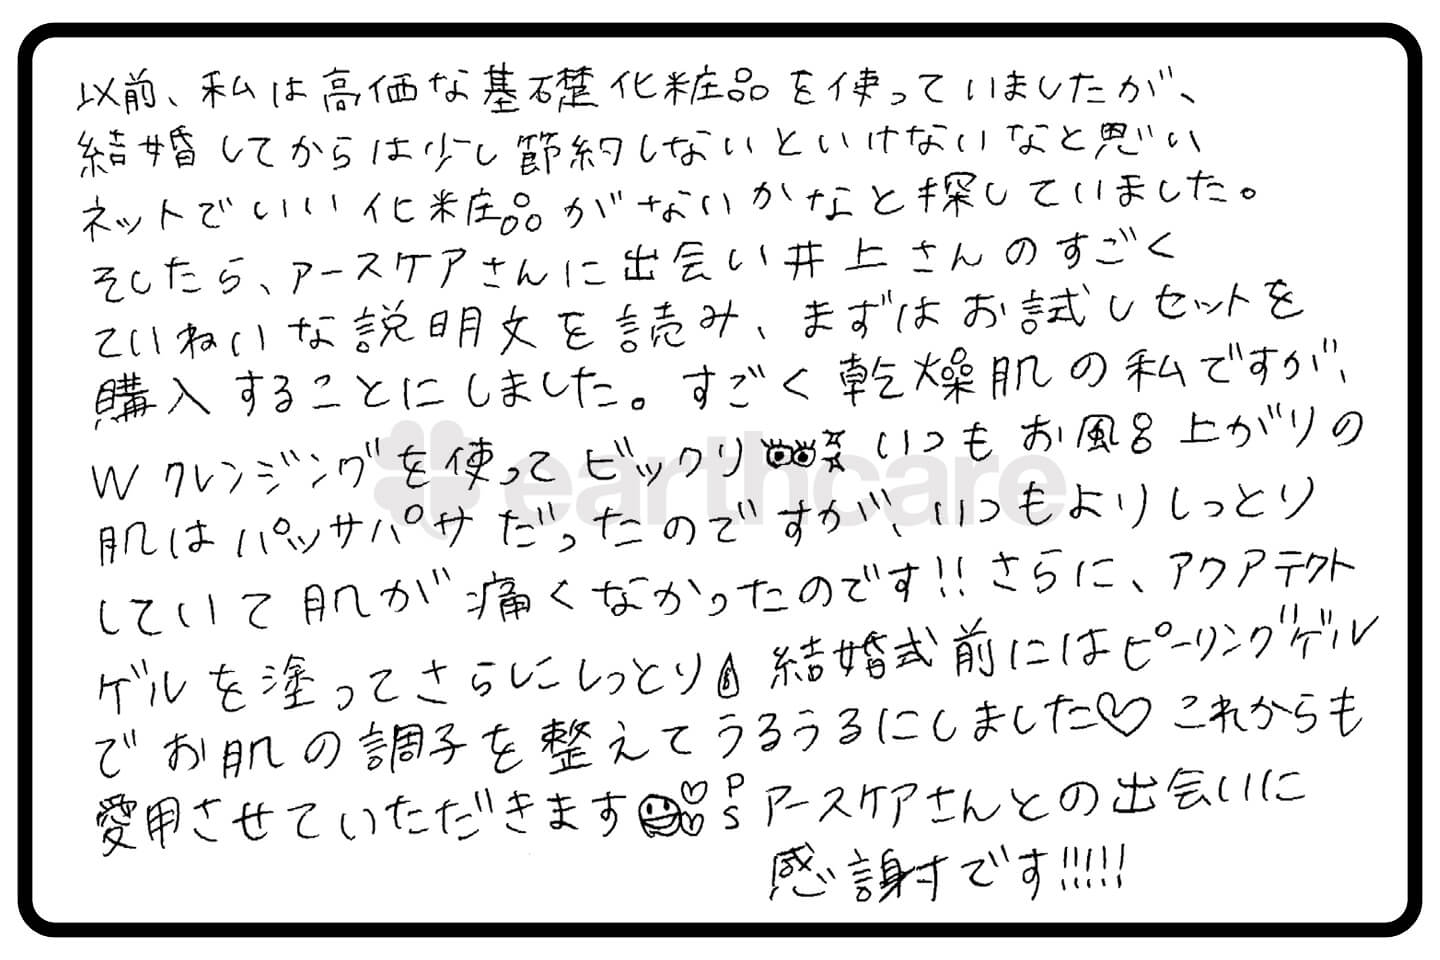 以前、私は高価な基礎化粧品を使っていましたが、
結婚してからは少し節約しないといけないなと思い
ネットでいい化粧品がないかなと探していました。
そしたら、アースケアさんに出会い井上さんのすごく
ていねいな説明文を読み、まずはお試しセットを
購入することにしました。すごく乾燥肌の私ですが、
Wクレンジングを使ってビックリ いつもお風呂上がりの
肌はパッサパサだったのですが、いつもよりしっとり
していて肌が痛くなかったのです!! さらに、アクアテクト
ゲルを塗ってさらにしっとり 結婚式前にはピーリングゲル
でお肌の調子を整えてうるうるにしました♡ これからも
愛用させていただきます PS アースケアさんとの出会いに
感謝です!!!!!
earthcare